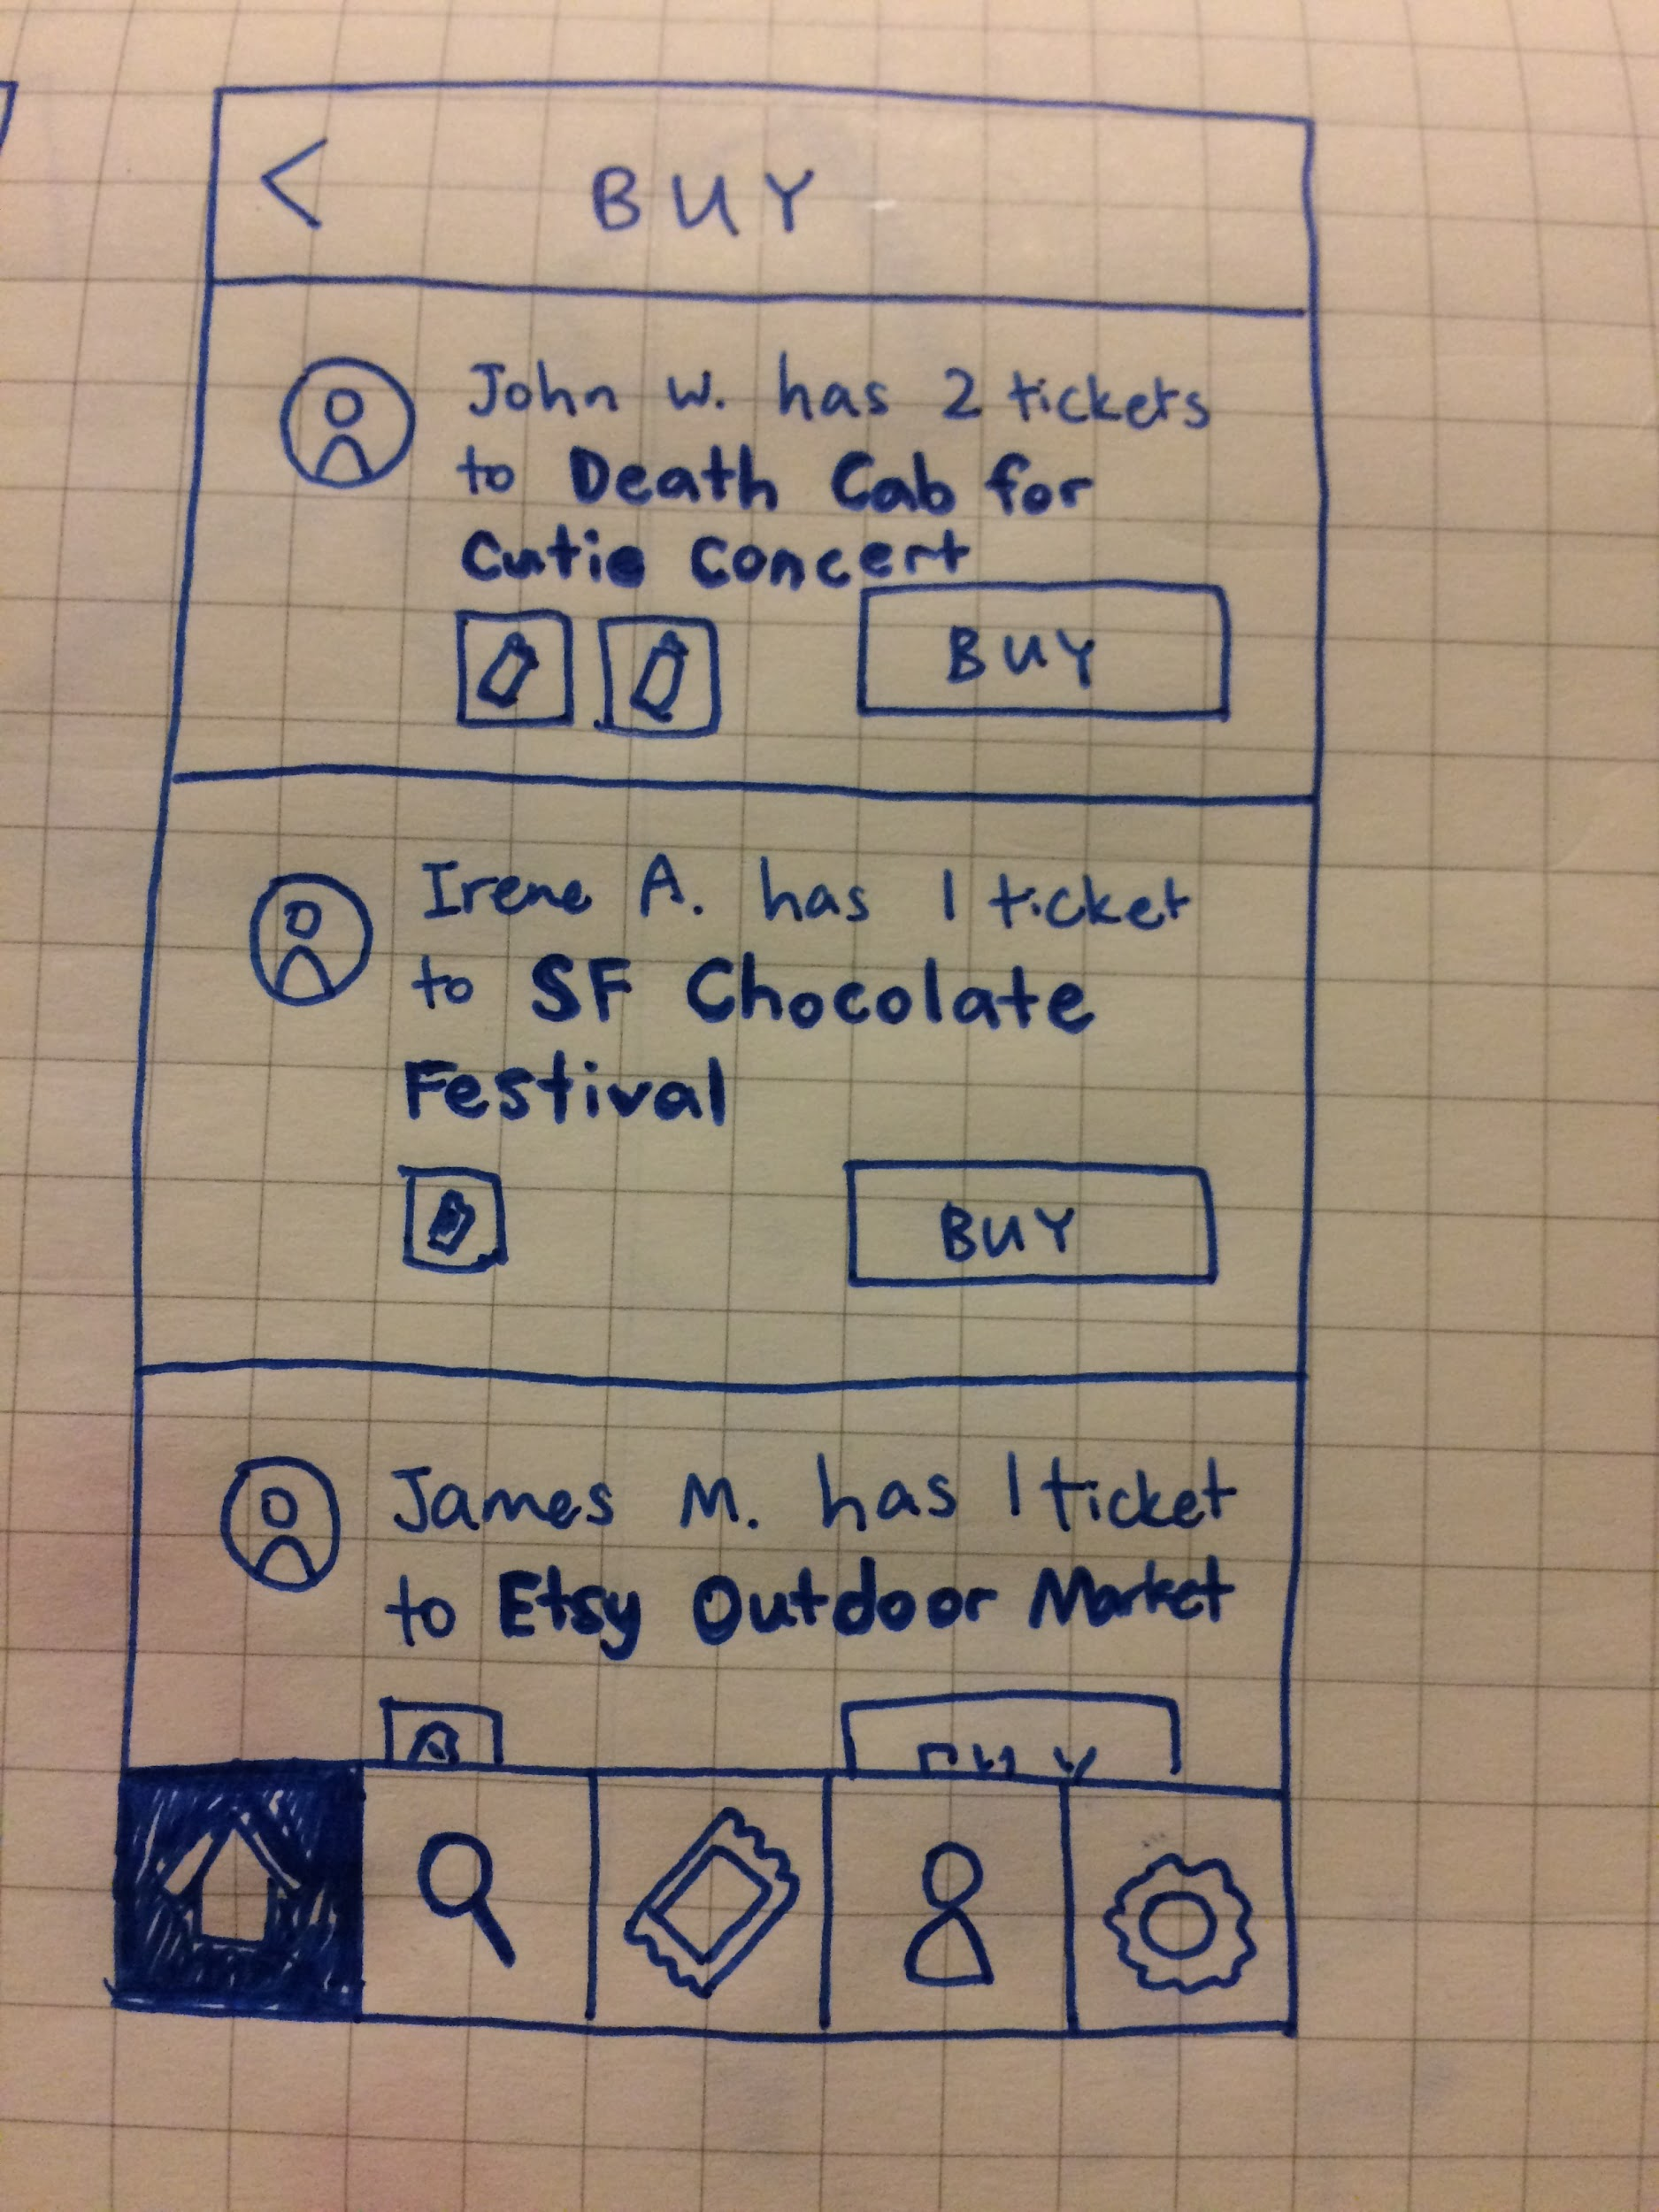 < BUY
John W. has 2 tickets
to Death Cab for
Cutie Concert
BUY
Irene A. has 1 ticket
to SF Chocolate
Festival
BUY
James M. has 1 ticket
to Etsy Outdoor Market
BUY